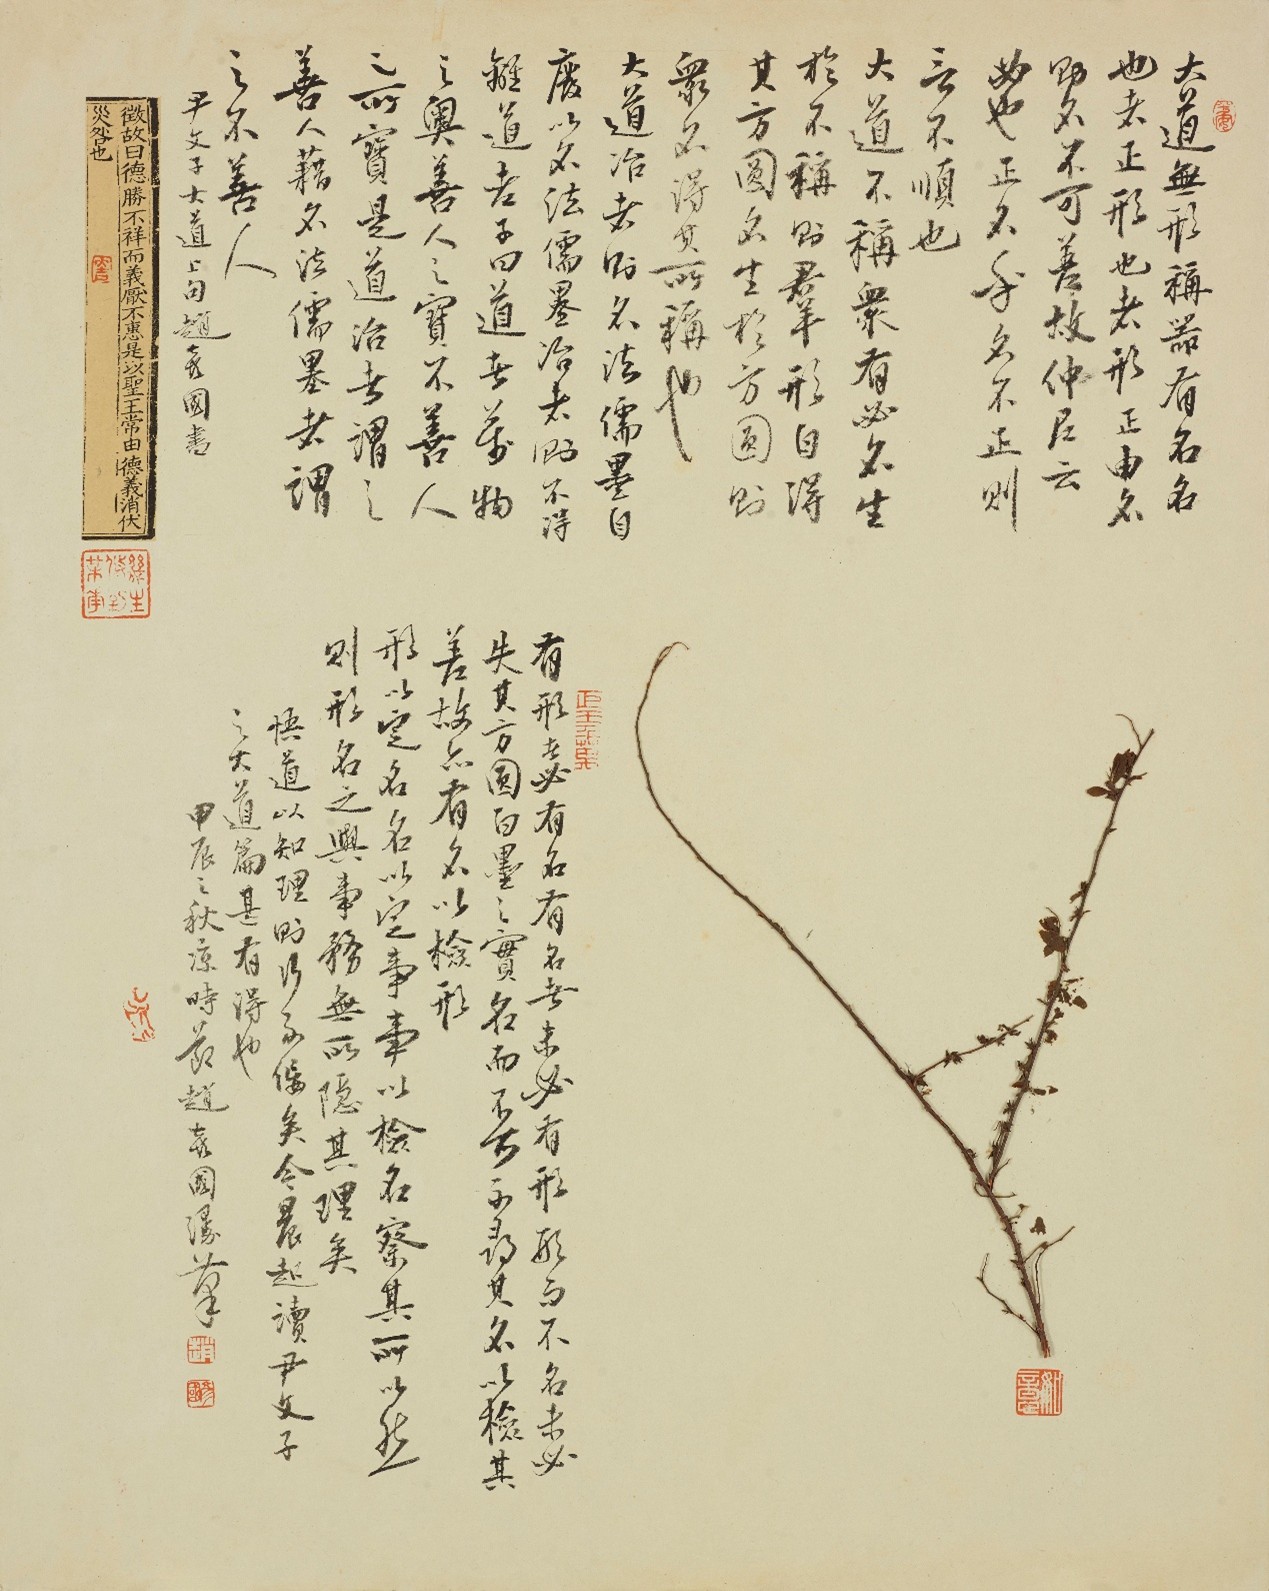 大道無形稱器有名名
也者正形也者形正由名
則名不可差故仲尼云
必也正名乎名不正則
言不順也
大道不稱眾有必名生
於不稱則群形自得
其方圓名生於方圓則
眾名得其所稱也
大道治者則名法儒墨自
廢以名法儒墨治者則不得
離道老子曰道者萬物
之奧善人之寶不善人
之所寶是道治者謂之
善人藉名法儒墨者謂
之不善人
尹文子大道上句趙彥國書
徵故曰德勝不祥而義厭不惠是以聖王常由德義消伏
災咎也
有形者必有名有名者未必有形形而不名未必
失其方圓白墨之實名而不可不尋其名以檢其
差故亦有名以檢形
形以定名名以定事事以檢名察其所以然
則形名之與事務無所隱其理矣
悟道以知理則行不偏矣今晨起讀尹文子
之大道篇甚有得也
甲辰之秋涼時節趙彥國漫筆